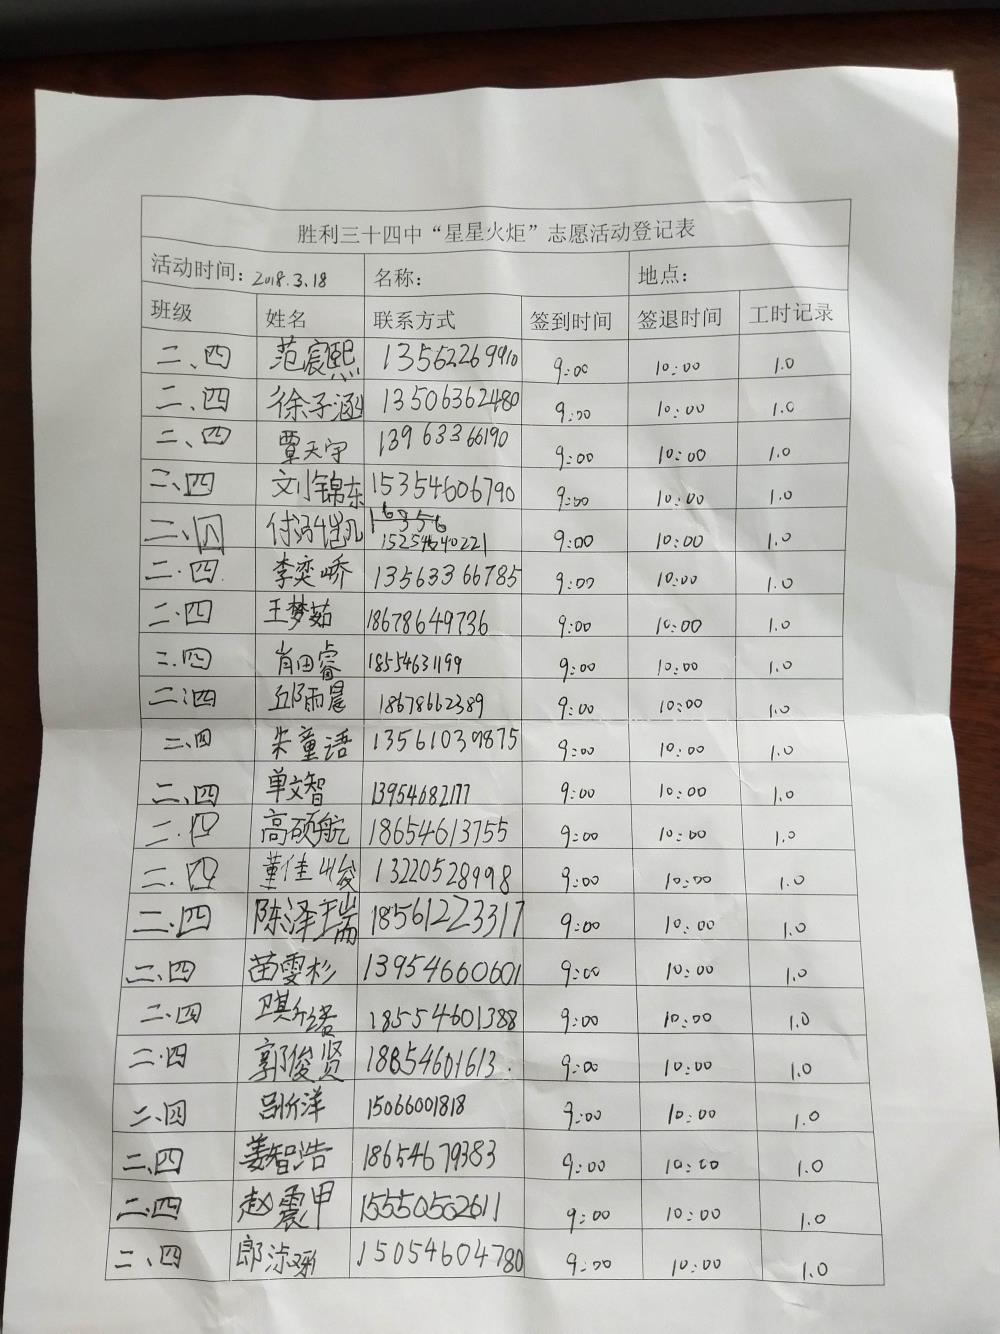 胜利三十四中“星星火炬”志愿活动登记表
活动时间: 2018.3.18 名称: 地点:
班级 姓名 联系方式 签到时间 签退时间 工时记录
二、四 范宸熙 13562269910 9:00 10:00 1.0
二、四 徐子涵 13506362480 9:00 10:00 1.0
二、四 覃天宇 13963366190 9:00 10:00 1.0
二、四 刘锦东 15354606790 9:00 10:00 1.0
二、四 付 凯 15254640221 9:00 10:00 1.0
二·四 李奕峤 13563366785 9:00 10:00 1.0
二·四 王梦茹 18678649736 9:00 10:00 1.0
二.四 肖田睿 18554631199 9:00 10:00 1.0
二:四 邱雨晨 18678662389 9:00 10:00 1.0
二、四 朱童语 13561039875 9:00 10:00 1.0
二、四 单文智 13954682177 9:00 10:00 1.0
二.四 高硕航 18654613755 9:00 10:00 1.0
二.四 董佳峻 13220528998 9:00 10:00 1.0
二.四 陈泽瑞 18561223317 9:00 10:00 1.0
二.四 苗雯杉 13954660601 9:00 10:00 1.0
二.四 18554601388 9:00 10:00 1.0
二·四 郭俊贤 18854601613. 9:00 10:00 1.0
二、四 吕忻洋 15066001818 9:00 10:00 1.0
二、四 姜智浩 18654679383 9:00 10:00 1.0
二.四 赵震甲 15550502611 9:00 10:00 1.0
二、四 郎 15054604780 9:00 10:00 1.0